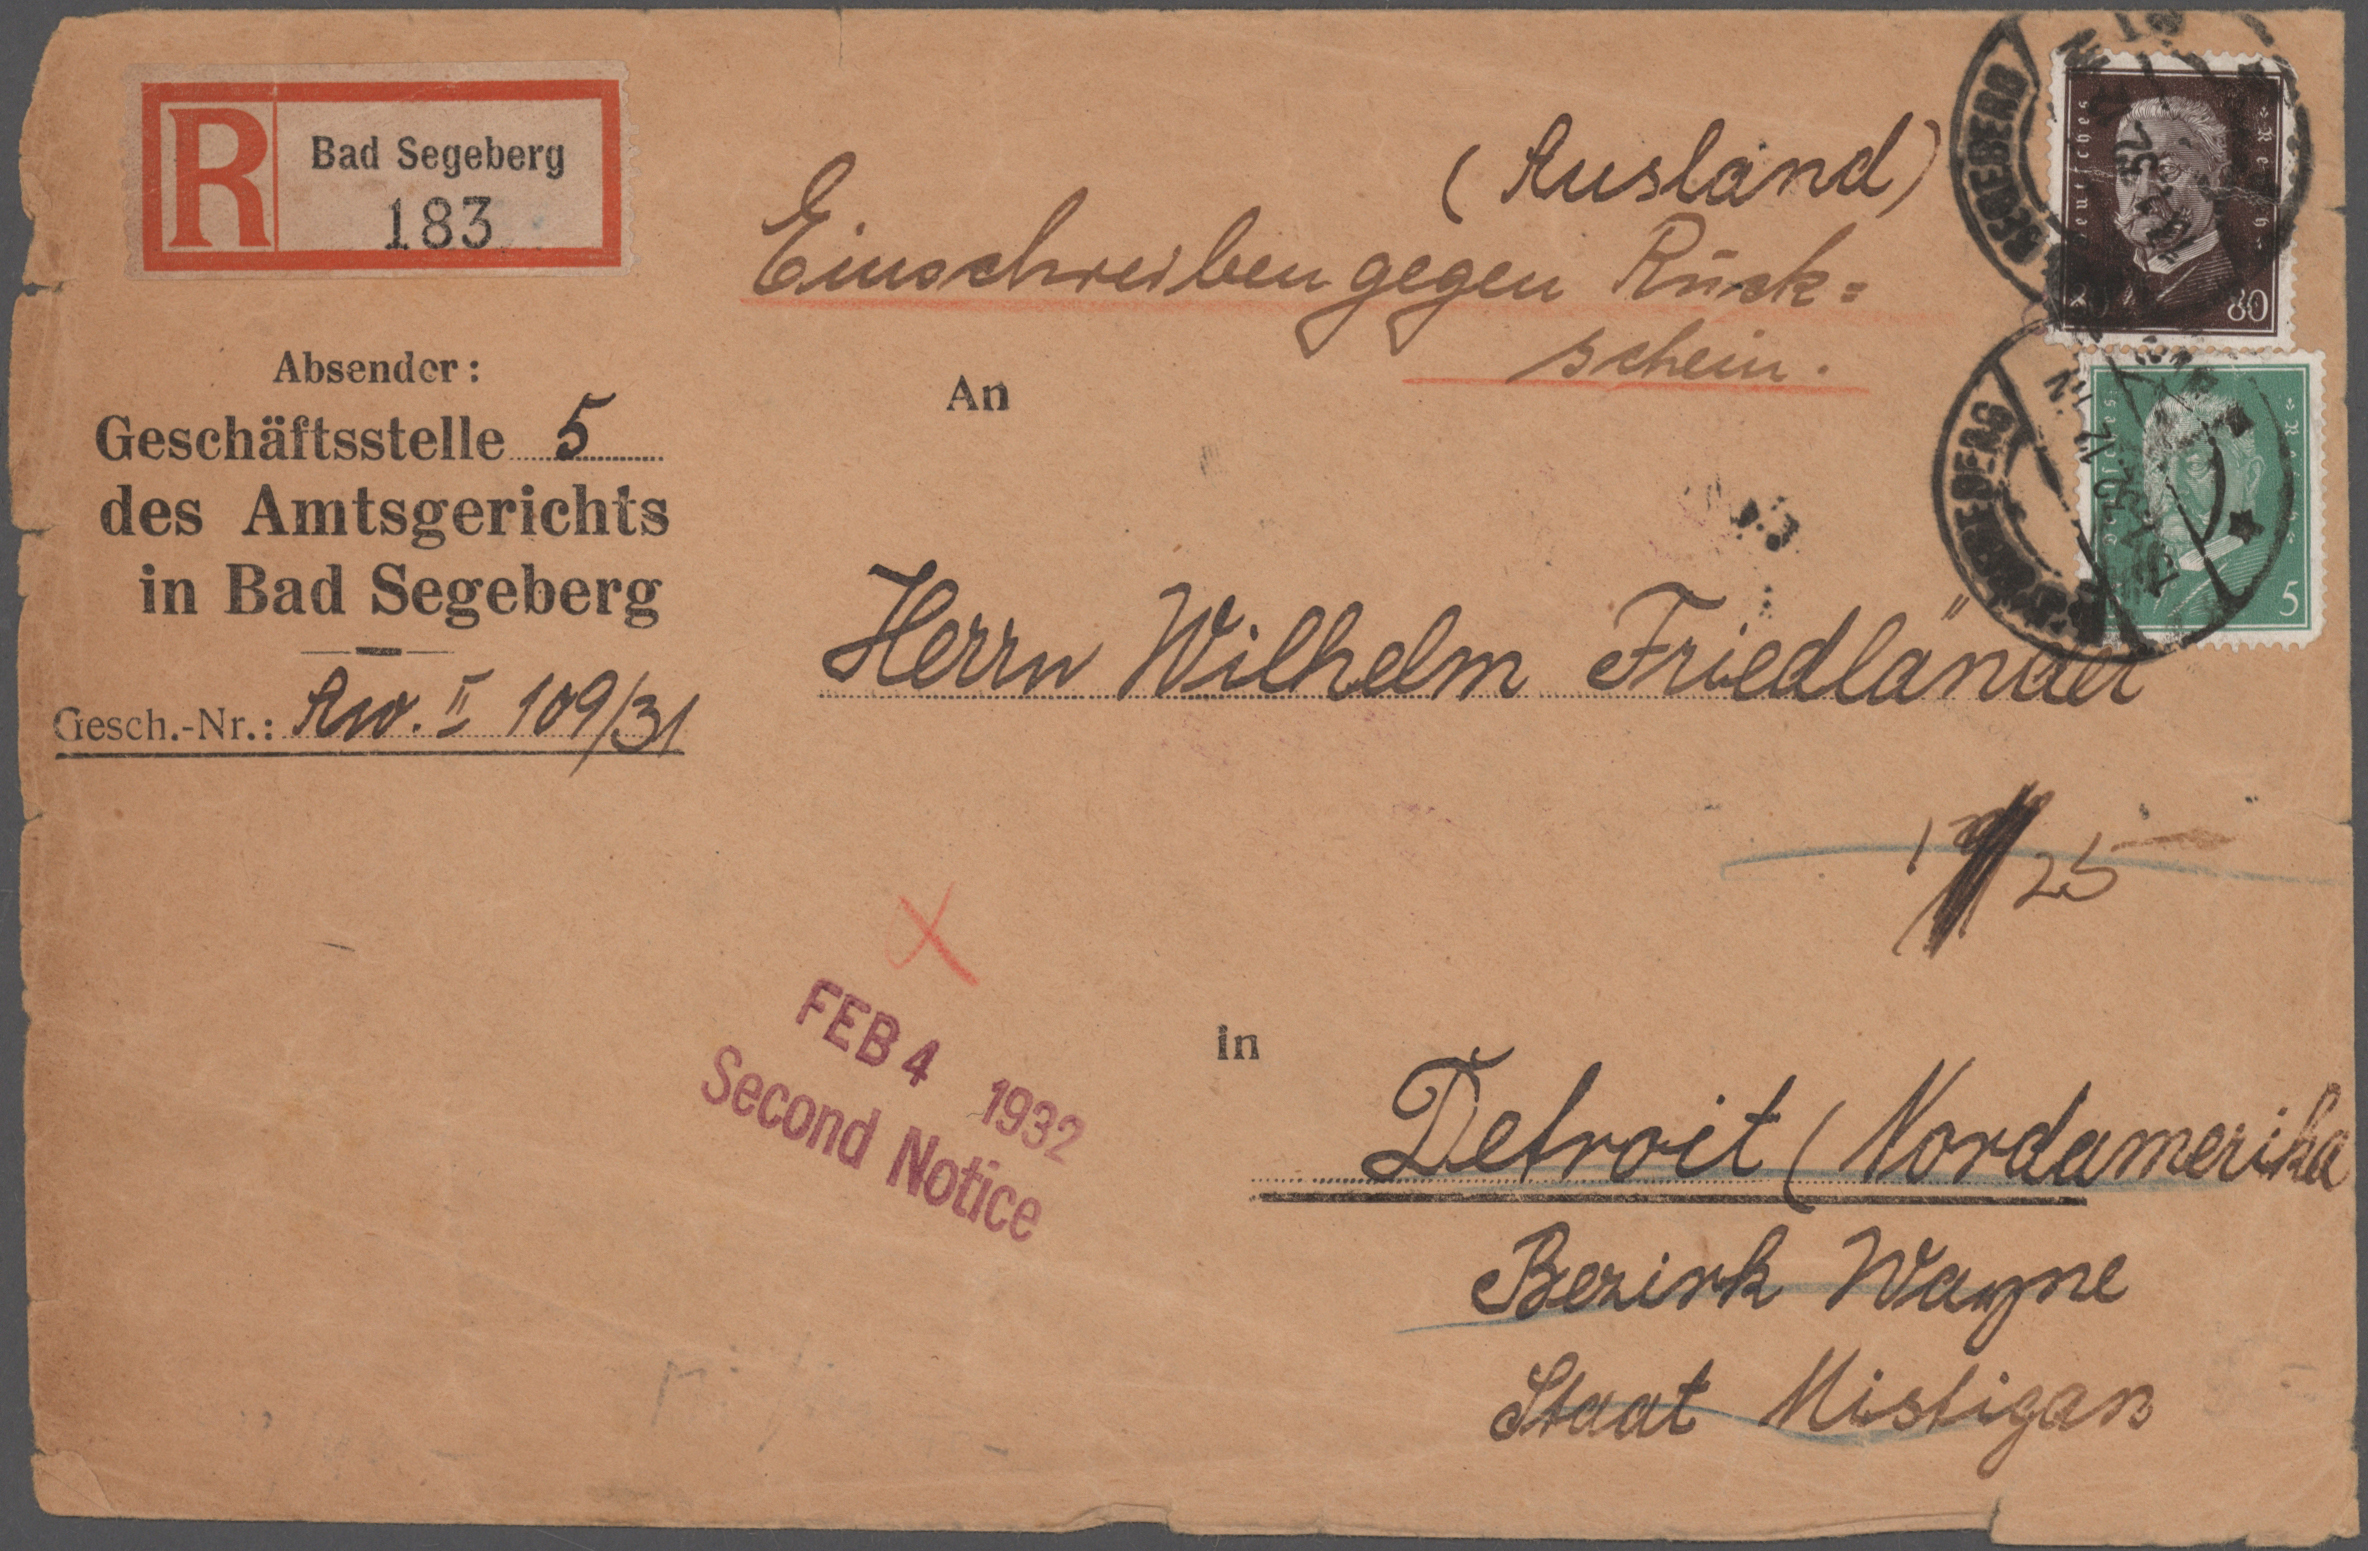 R
Bad Segeberg
183
(Ausland)
Einschreiben gegen Rück=
schein.
Absender:
Geschäftsstelle 5
des Amtsgerichts
in Bad Segeberg
Gesch.-Nr.: Aw. II 109/31
An
Herrn Wilhelm Friedländer
25
FEB 4 1932
Second Notice
in
Detroit (Nordamerika
Bezirk Wayne
Staat Mistigan
Deutsches Reich
80
SEGEBERG
Deutsches Reich
5
SEGEBERG